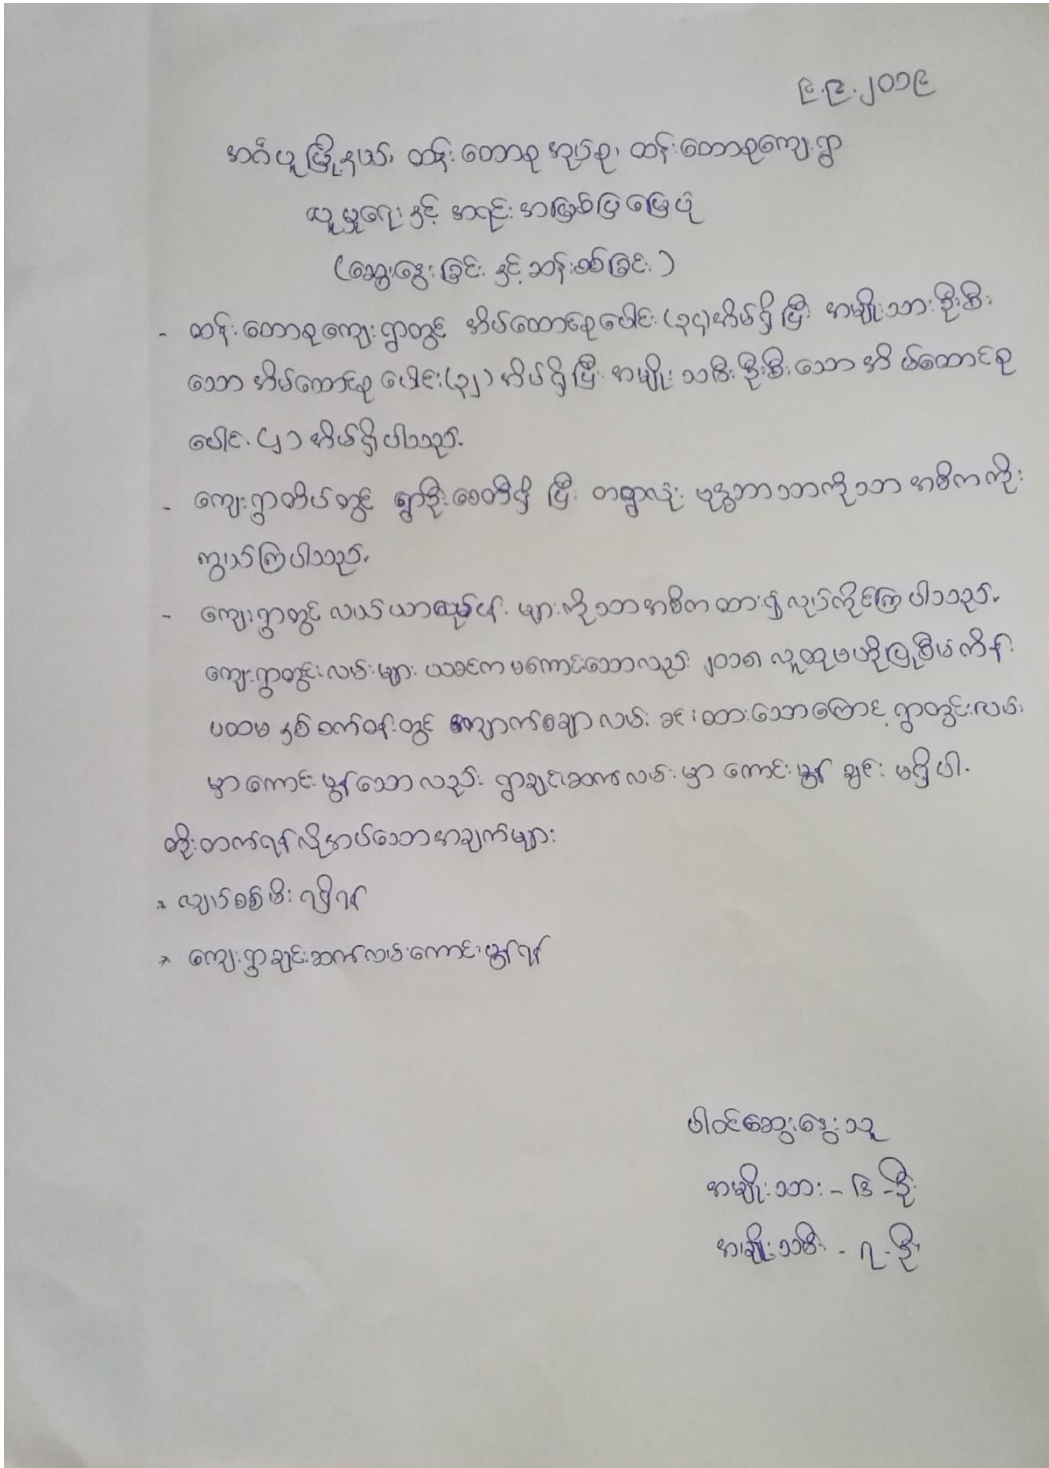 ၉.၉.၂၀၁၉
အင်္ဂပူမြို့နယ်၊ ထန်းတောစုအုပ်စု၊ ထန်းတောစုကျေးရွာ
လူမှုရေးနှင့် အရင်းအမြစ်ပြမြေပုံ
(ဆွေးနွေးခြင်း နှင့် ဆန်းစစ်ခြင်း)
- ထန်းတောစုကျေးရွာတွင် အိမ်ထောင်စုပေါင်း (၃၄)အိမ်ရှိပြီး အမျိုးသားဦးစီး
သော အိမ်ထောင်စု ပေါင်း(၃၂) အိမ်ရှိပြီး အမျိုးသမီးဦးစီးသော အိမ်ထောင်စု
ပေါင်း (၂) အိမ်ရှိပါသည်။
- ကျေးရွာထိပ်တွင် ရွာဦးစေတီရှိ ပြီး တရွာလုံး ဗုဒ္ဓဘာသာကိုသာ အဓိကကိုး
ကွယ်ကြပါသည်။
- ကျေးရွာတွင် လယ်ယာလုပ်ငန်း များကိုသာအဓိကထား၍ လုပ်ကိုင်ကြပါသည်။
ကျေးရွာတွင်းလမ်းများ ယခင်ကမကောင်းသော်လည်း ၂၀၁၈ လူထုဗဟိုပြုစီမံကိန်း
ပထမ နှစ်စက်ဝန်းတွင် ကျောက်ချောလမ်း ခင်းထားသောကြောင့် ရွာတွင်းလမ်း
မှာကောင်းမွန်သော်လည်း ရွာချင်းဆက်လမ်းမှာ ကောင်းမွန် ချင်း မရှိပါ။
တိုးတက်ရန်လိုအပ်သောအချက်များ
* လျှပ်စစ်မီးရရှိရန်
* ကျေးရွာချင်းဆက်လမ်းကောင်းမွန်ရန်
ပါဝင်ဆွေးနွေးသူ
အမျိုးသား - ၆ - ဦး
အမျိုးသမီး - ၇ - ဦး